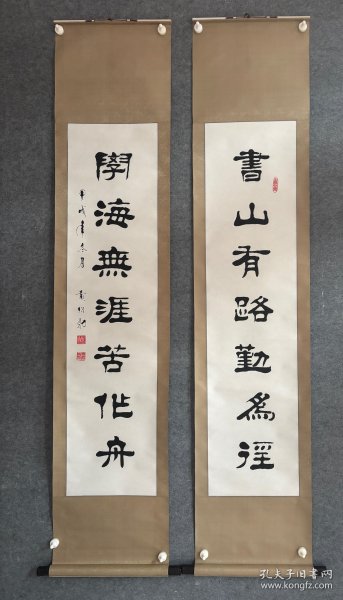 書山有路勤為徑
學海無涯苦作舟
甲戌年冬月
孔夫子旧书网
www.kongfz.com